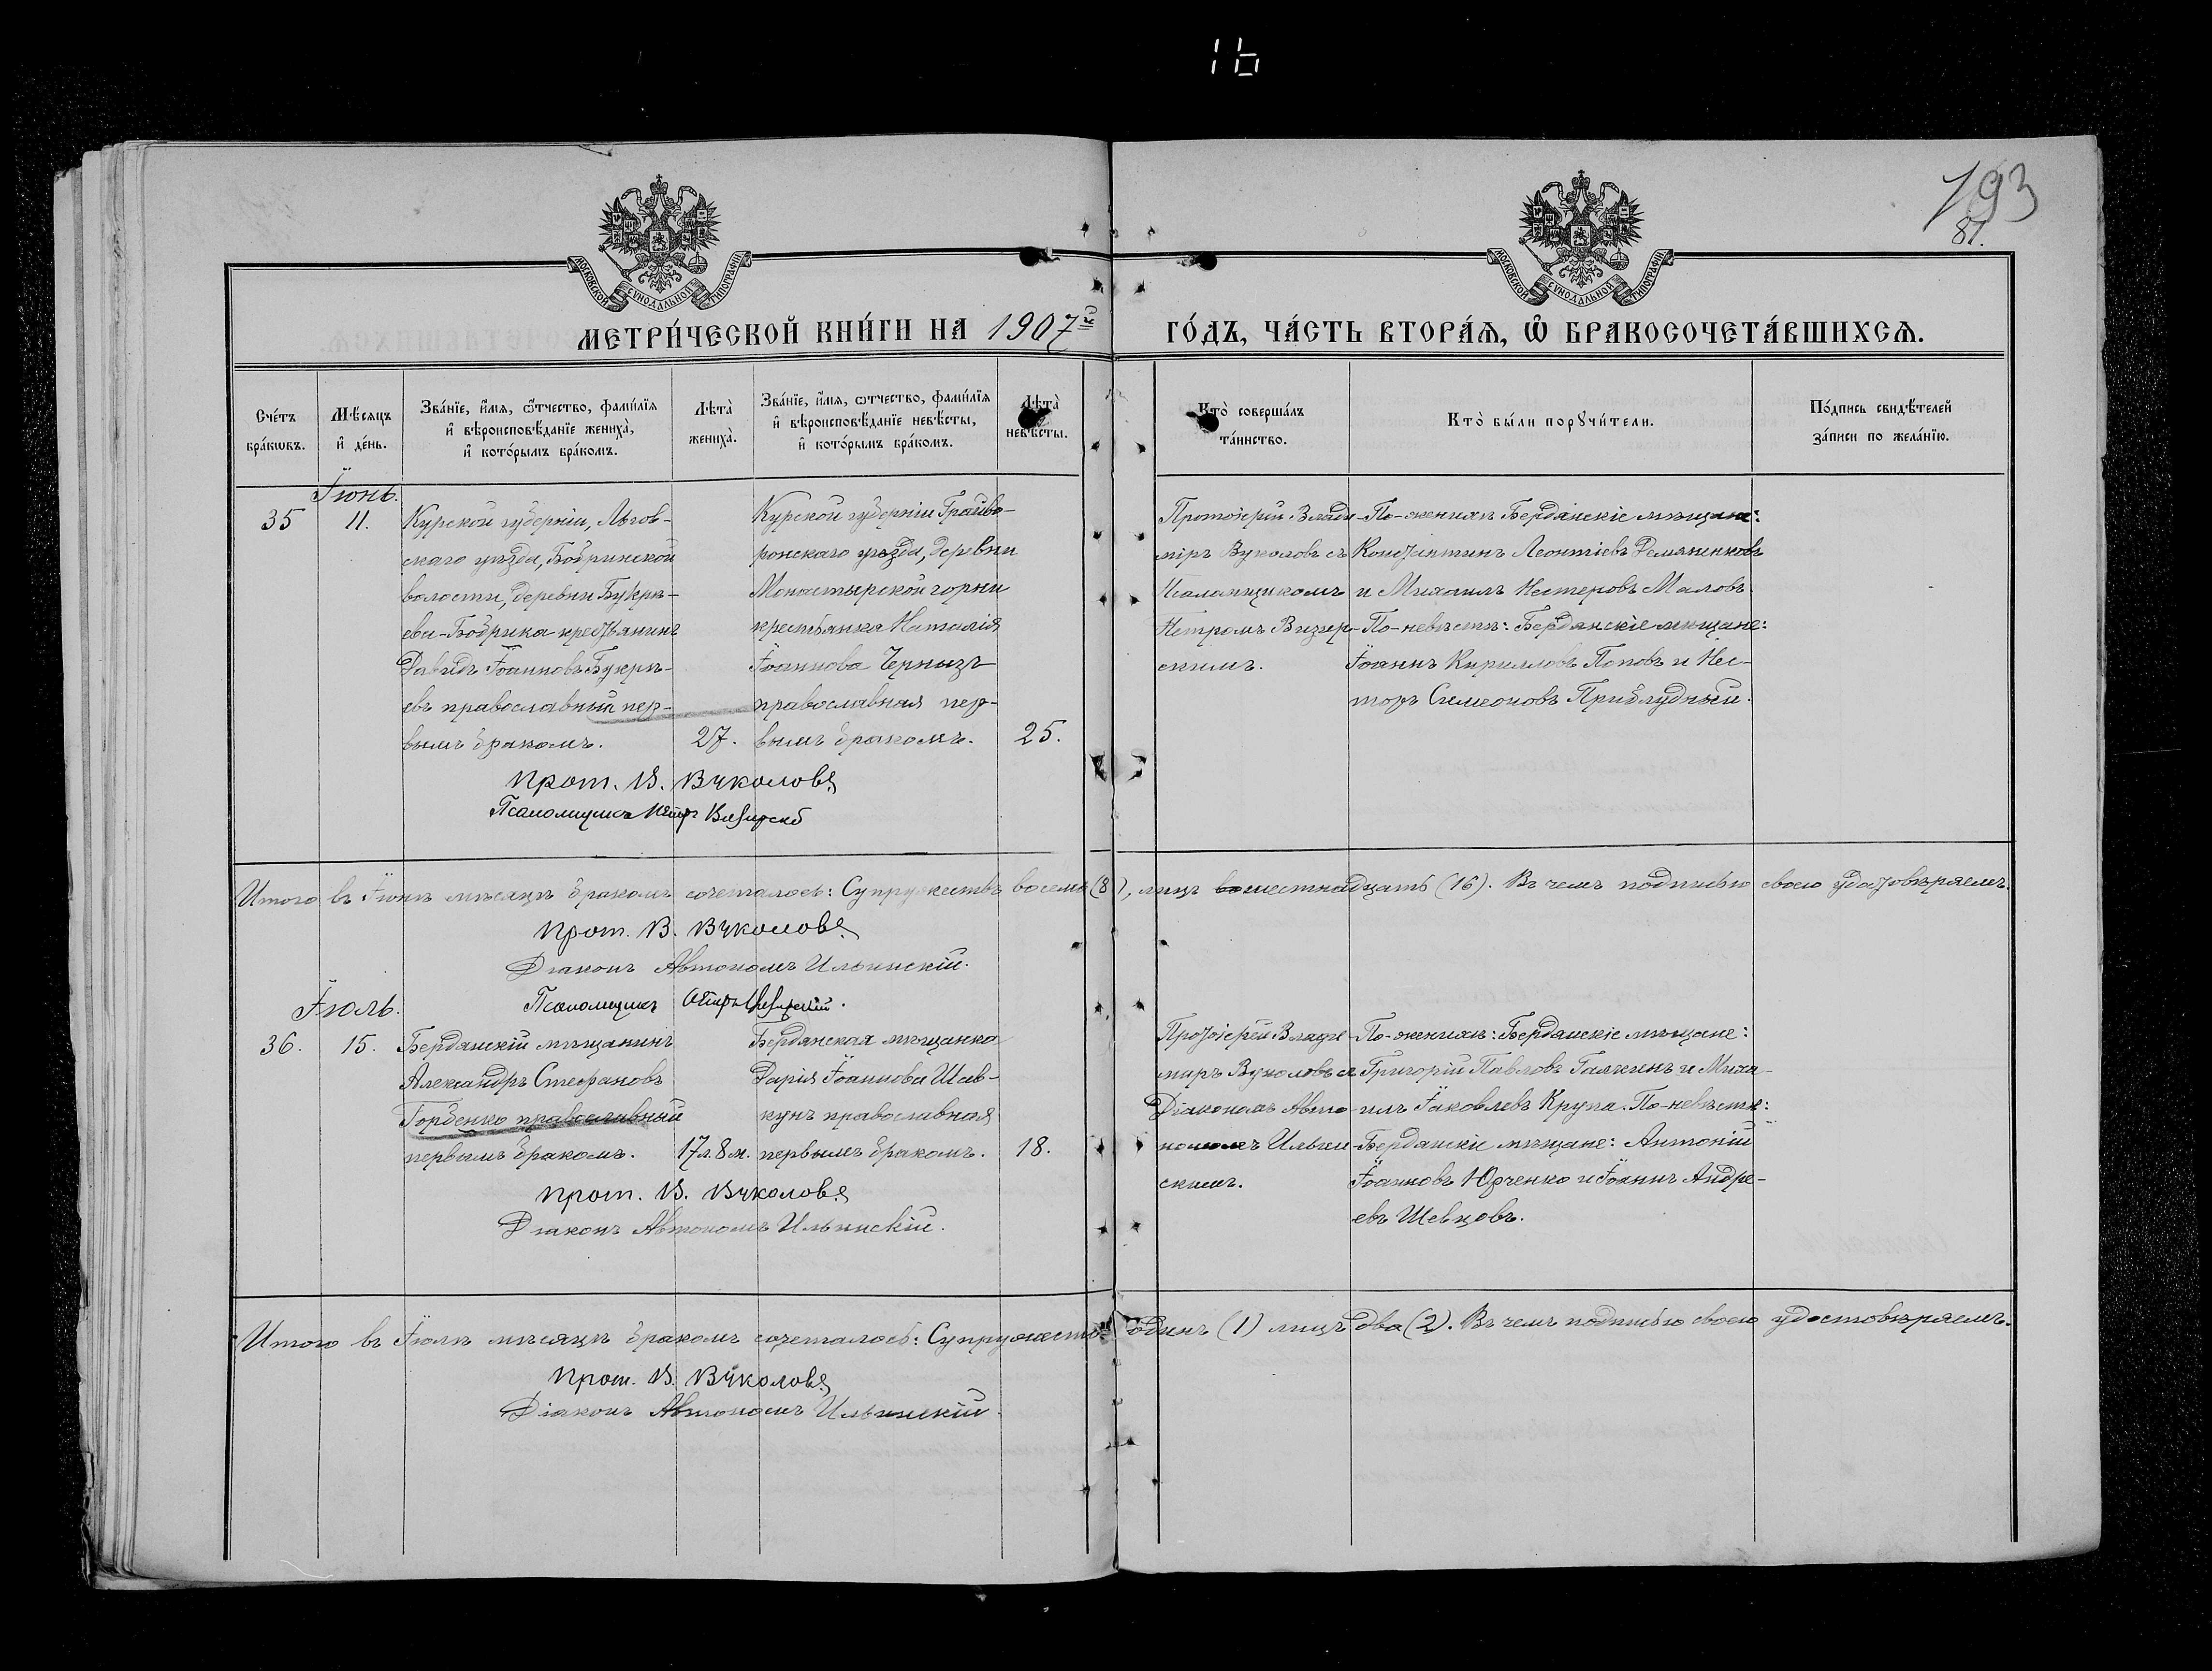 16
193
81.
МОСКОВСКОЙ СѴНОДАЛЬНОЙ ТИПОГРАФІИ
МОСКОВСКОЙ СѴНОДАЛЬНОЙ ТИПОГРАФІИ
МЕТРИ́ЧЕСКОЙ КНИ́ГИ НА 1907й ГО́ДЪ, ЧА́СТЬ ВТОРА́Я, Ѡ҆ БРАКОСОЧЕТА́ВШИХСЯ.
Сче́тъ бра́кѡвъ.
Мѣ́сяцъ и҆ де́нь.
Зва́нїе, и҆́мя, ѻ҆́тчество, фами́лїя и҆ вѣроисповѣ́данїе жениха̀, и҆ кото́рымъ бра́комъ.
Лѣта̀ жениха̀.
Зва́нїе, и҆́мя, ѻ҆́тчество, фами́лїя и҆ вѣроисповѣ́данїе невѣ́сты, и҆ кото́рымъ бра́комъ.
Лѣта̀ невѣ́сты.
Кто̀ соверша́лъ та́инство.
Кто̀ бы́ли порꙋчи́тели.
По́дпись свидѣ́телей за́писи по жела́нїю.
Іюнь.
35
11.
Курской губерніи, Льгов-
скаго уѣзда, Бобринской
волости, деревни Букрѣ-
ева-Бобрика крестьянинъ
Давидъ Іоанновъ Букрѣ-
евъ православный пер-
вымъ бракомъ.
27.
Курской губерніи Грайво-
ронскаго уѣзда, деревни
Монастырской горни
крестьянка Наталія
Іоаннова Чернызъ
православная пер-
вымъ бракомъ.
25.
Протоіерей Влади-
міръ Вуколовъ съ
Псаломщикомъ
Петромъ Визир-
скимъ.
По-женихѣ Бердянскіе мѣщане:
Константинъ Леонтіевъ Демяненковъ
и Михаилъ Нестеровъ Маловъ.
По-невѣстѣ: Бердянскіе мѣщане:
Іоаннъ Кирилловъ Поповъ и Нес-
торъ Симеоновъ Приблудный.
Прот. В. Вуколовъ
Псаломщикъ Петръ Визирскій
Итого въ Іюнѣ мѣсяцѣ бракомъ сочеталось: Супружествъ восемь (8), лицъ шестнадцать (16). Въ чемъ подписью своею удостовѣряемъ.
Прот. В. Вуколовъ
Діаконъ Автономъ Ильинскій.
Псаломщикъ Петръ Визирскій.
Іюль.
36.
15.
Бердянскій мѣщанинъ
Александръ Стефановъ
Горбенко православный
первымъ бракомъ.
17л.8м.
Бердянская мѣщанка
Дарія Іоаннова Шав-
кунъ православная
первымъ бракомъ.
18.
Протоіерей Влади-
миръ Вуколовъ съ
Діакономъ Авто-
номомъ Ильин-
скимъ.
По-женихѣ: Бердянскіе мѣщане:
Григорій Павловъ Галкинъ и Миха-
илъ Іаковлевъ Крупа. По-невѣстѣ:
Бердянскіе мѣщане: Антоній
Іоанновъ Юрченко и Іоаннъ Андре-
евъ Шевцовъ.
Прот. В. Вуколовъ
Діаконъ Автономъ Ильинскій.
Итого въ Іюлѣ мѣсяцѣ бракомъ сочеталось: Супружество одинъ (1) лицъ два (2). Въ чемъ подписью своею удостовѣряемъ.
Прот. В. Вуколовъ
Діаконъ Автономъ Ильинскій.